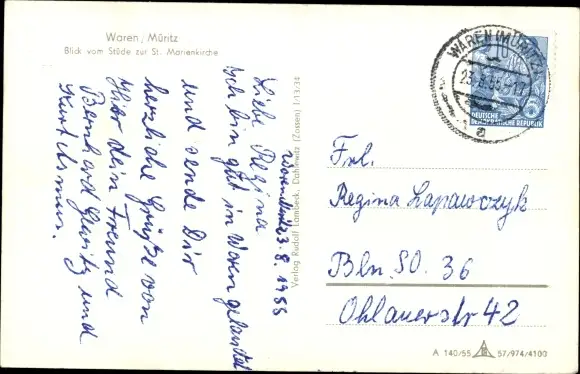 Waren/Müritz
Blick vom Stüde zur St. Marienkirche
Waren Müritz 3.8.1955
Liebe Regina
Ich bin gut in Waren gelandet
und sende Dir
herzliche Grüße von
Hier dein Freund
Bernhard und
Verlag Rudolf Lambeck, Dahlewitz (Zossen) 1:13:34
WAREN (MÜRITZ)
a
DEUTSCHE
DEMOKRATISCHE REPUBLIK
5
Frl.
Regina Lapawczyk
Bln. SO. 36
Ohlauerstr 42
A 140/55 57/974/4100